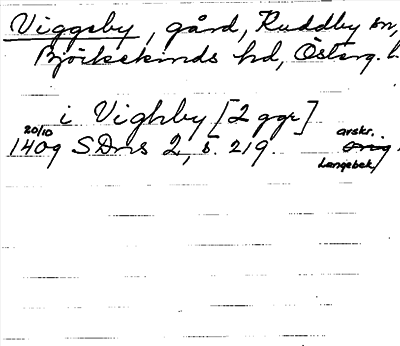 Viggeby, gård, Ruddby sn,
Björkekinds hd, Österg. l.
i Vighby [2 ggr]
20/10 avskr.
1409 SDns 2, s. 219. orig
Langebek